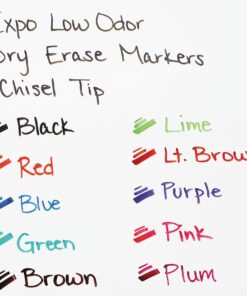 Expo Low Odor
Dry Erase Markers
Chisel Tip
Black
Red
Blue
Green
Brown
Lime
Lt. Brow
Purple
Pink
Plum